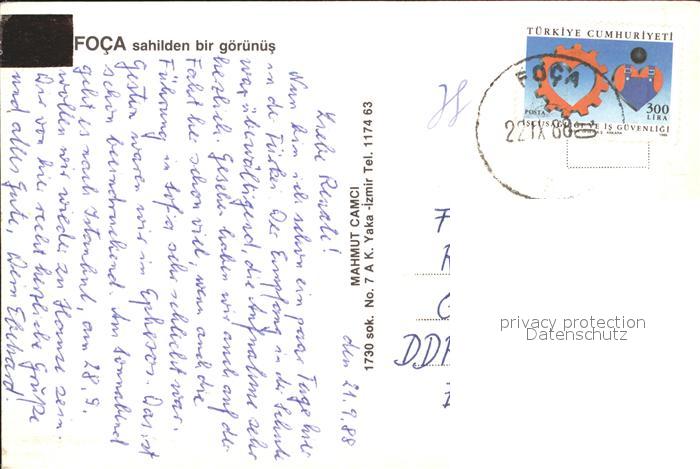 FOÇA sahilden bir görünüş
den 21.9.88
Liebe Renate!
Nun bin ich schon ein paar Tage hier
in der Türkei. Der Empfang in der Schule
war überwältigend, die Aufnahme sehr
herzlich. Gesehen haben wir auch auf der
Fahrt hie schon viel, wenn auch die
Führung in Sofia sehr schlecht war.
Gestern waren wir in Ephesos. Das ist
schon beeindruckend. Am Sonnabend
geht es nach Istanbul, am 28.9.
wollen wir wieder zu Hause sein.
Dir von hier recht herzliche Grüße
und alles Gute, Dein Eberhard.
MAHMUT CAMCI
1730 sok. No. 7 A K. Yaka -İzmir Tel. 1174 63
TÜRKİYE CUMHURİYETİ
300
LİRA
POSTA
İŞ GÜVENLİĞİ
FOÇA
22 IX 88
F
DDR
privacy protection
Datenschutz